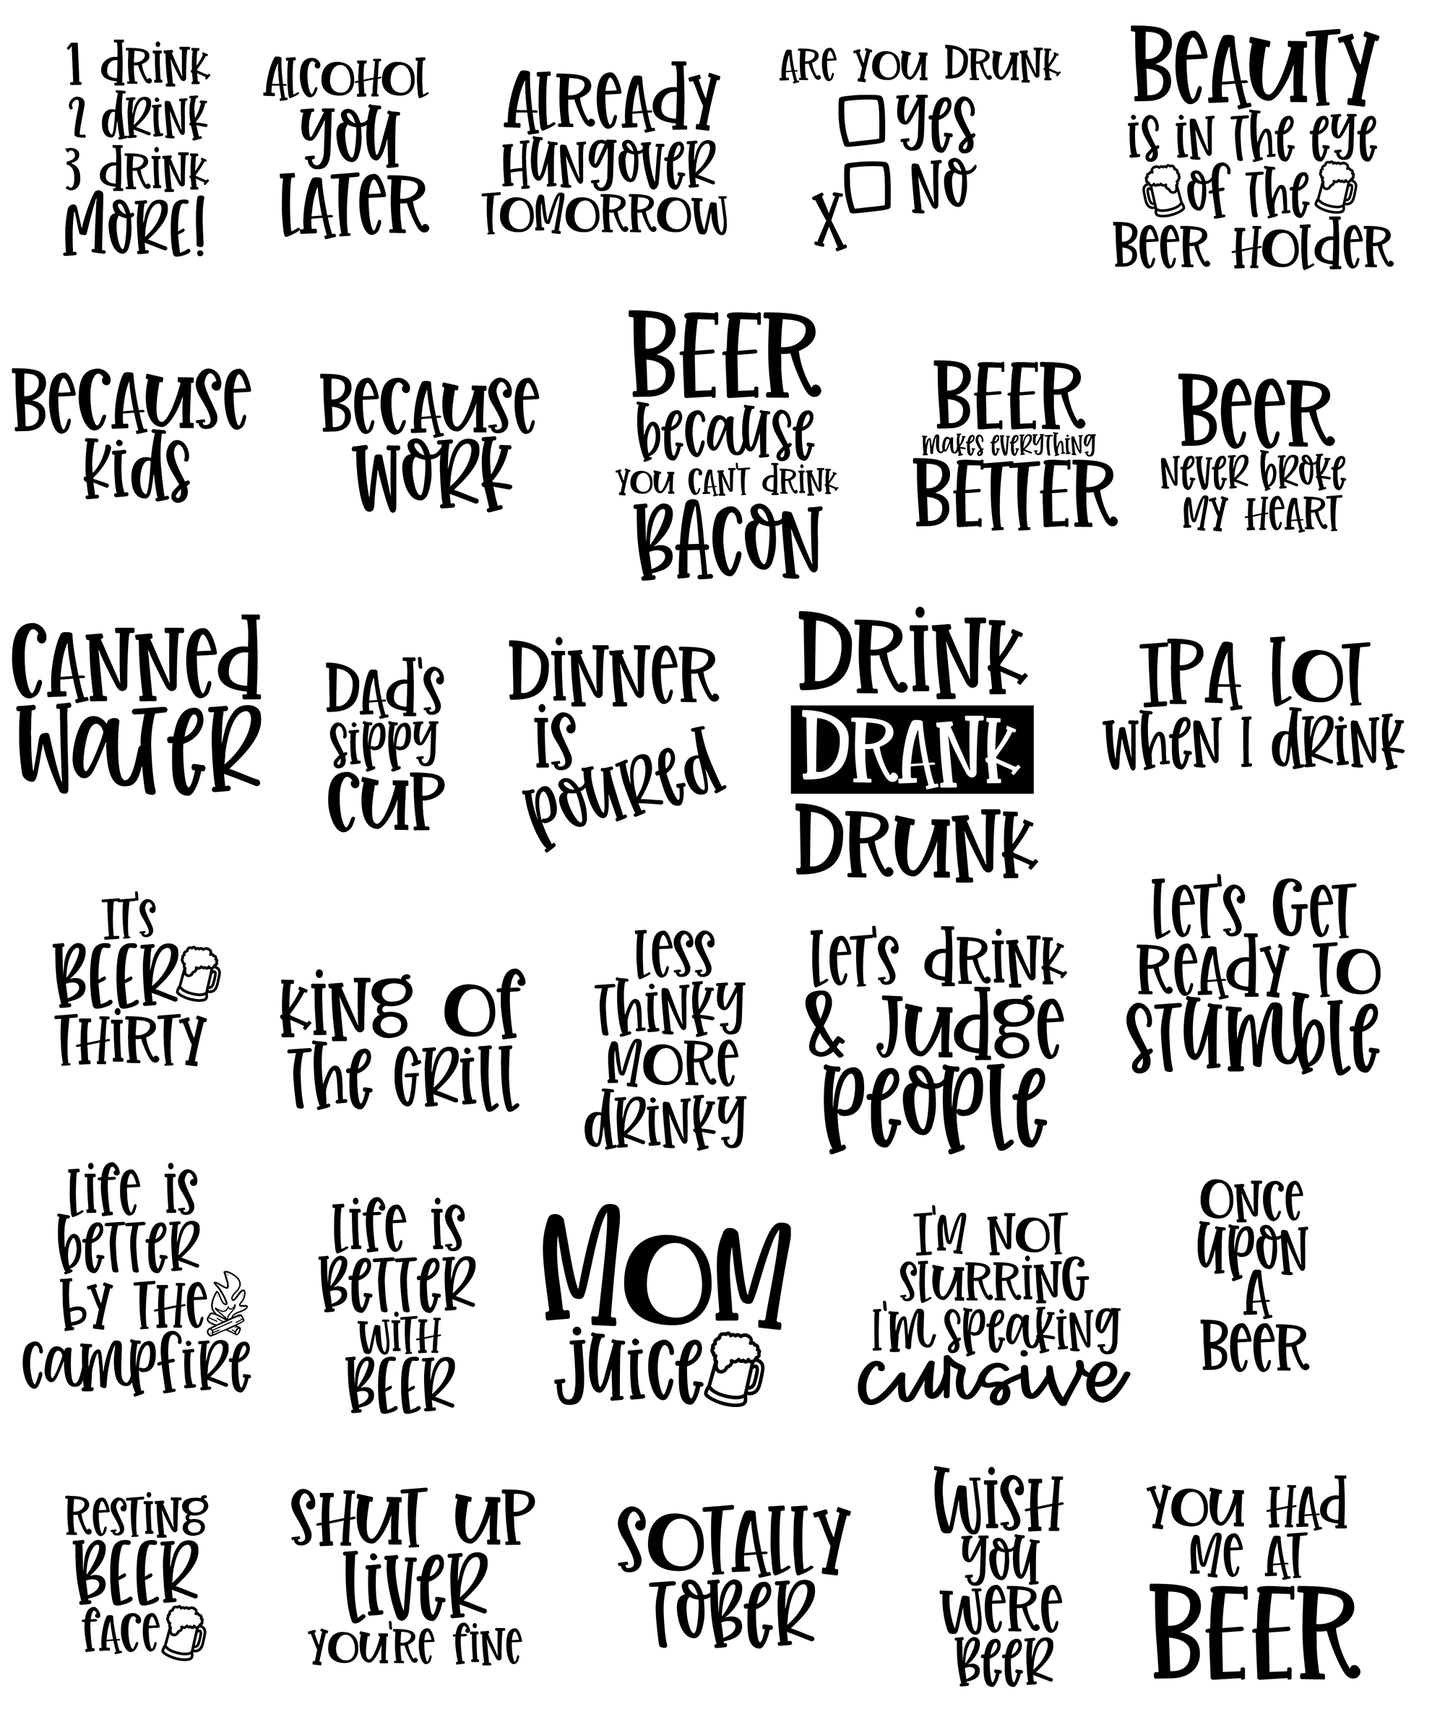 1 drink
2 drink
3 drink
MORE!
ALCOHOL
you
LATER
ALREAdy
HUNgOVER
TOMORROW
ARE YOU DRUNK
yes
NO
X
BEAUTY
is iN The eye
of The
BEER HOLdER
BECAUSE
kids
BECAUSE
WORK
BEER
because
YOU CAN'T dRiNK
BACON
BEER
MAKES EVERYTHiNg
BETTER
BEER
NEVER bROKE
MY HEART
CANNEd
WATER
DAd's
sippy
CUP
DiNNER
is
pOUREd
DRiNK
DRANK
DRUNK
IPA LOT
WheN I dRiNK
IT'S
BEER
THiRTY
KiNg Of
The GRiLL
LESS
ThiNKY
MORE
dRiNKY
LET'S dRiNK
& Judge
peOpLe
LET'S GET
READY TO
STUMbLE
Life is
beTTER
by THE
campfiRE
Life is
BETTER
WiTH
BEER
MOM
juice
I'M NOT
SLURRiNG
I'M speakiNg
cursive
ONCE
UPON
A
BEER
RESTiNg
BEER
fACE
SHUT UP
LiVER
YOU'RE fiNE
SOTALLY
TOBER
WiSH
you
WERE
BEER
YOU HAd
ME AT
BEER